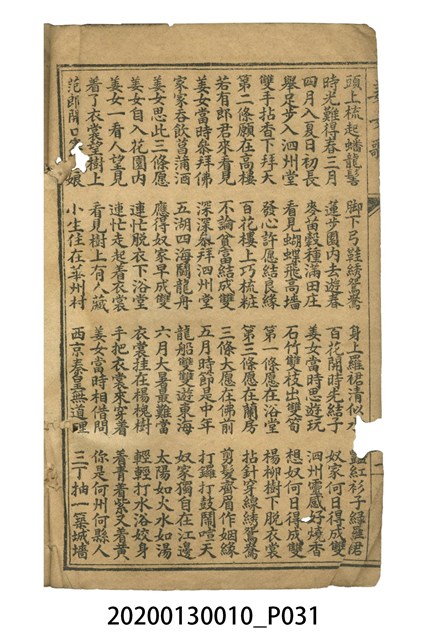 頭上梳起蟠龍髻 脚下弓鞋綉鴛鴦 身上羅裙清似水 紅衫子綠羅裙
時光難得春三月 蓮步園內去遊春 百花開時先結子 奴家何日得成雙
四月入夏日初長 麥苗穀種滿田庄 姜女當時思遊玩 泗州靈感好燒香
舉足步入泗州堂 看見蝴蝶飛高墻 石竹雙枝出雙笋 想奴何日得成雙
雙手拈香下拜天 發心許愿結良緣 第一條愿在浴堂 楊柳樹下脫衣裳
第二條願在高樓 百花樓上巧梳粧 第三條愿在蘭房 拈針穿線綉鴛鴦
若有郎君來看見 不論貧富結成雙 三條大愿在佛前 剪髮齋眉作姻緣
姜女當時叅拜佛 深深叅拜泗州堂 五月時節是中年 打鑼打鼓鬧喧天
家家吞飲菖蒲酒 五湖四海鬪龍舟 龍船雙雙遊東海 奴家獨自在江邊
姜女思此三條愿 應得奴家早成雙 六月大暑最難當 太陽如火水如湯
姜女自入花園內 連忙脫衣下浴堂 衣裳挂在楊槐樹 輕輕打水浴姣身
姜女一看人望見 連忙走起着衣裳 手把衣裳來穿着 着青着紫又着黃
着了衣裳望樹上 看見樹上有人藏 姜女當時相借問 你是何州何縣人
范郎開口 娘 小生住在華州村 西京秦皇無道理 三丁抽一築城墻
20200130010_P031